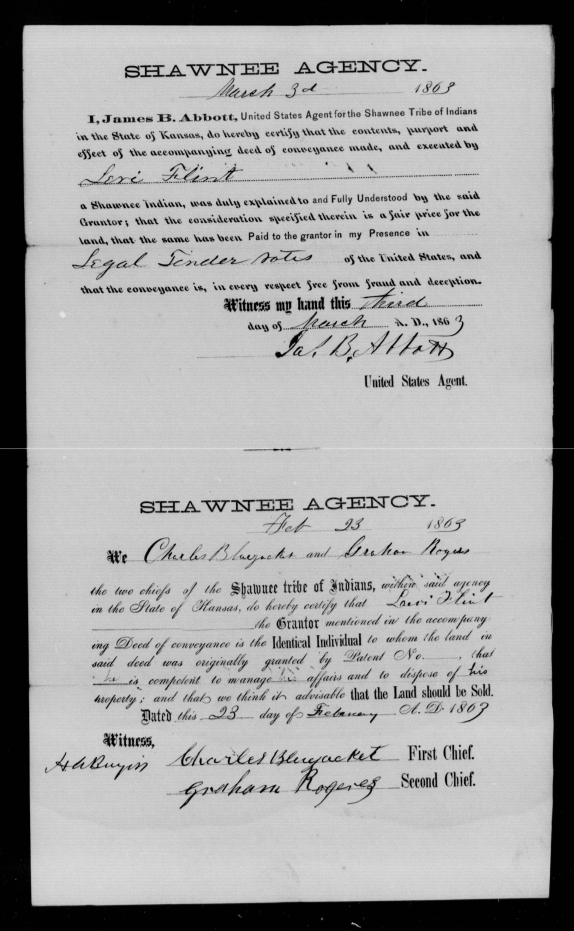 SHAWNEE AGENCY.
March 3d 1863
I, James B. Abbott, United States Agent for the Shawnee Tribe of Indians
in the State of Kansas, do hereby certify that the contents, purport and
effect of the accompanying deed of conveyance made, and executed by
Levi Flint
a Shawnee Indian, was duly explained to and Fully Understood by the said
Grantor; that the consideration specified therein is a fair price for the
land, that the same has been Paid to the grantor in my Presence in
Legal Tender Notes of the United States, and
that the conveyance is, in every respect free from fraud and deception.
Witness my hand this third
day of March A. D., 1863
Jas. B. Abbott
United States Agent.
SHAWNEE AGENCY.
Feb 23 1863
We Charles Bluejacket and Graham Rogers
the two chiefs of the Shawnee tribe of Indians, within said agency
in the State of Kansas, do hereby certify that Levi Flint
the Grantor mentioned in the accompany
ing Deed of conveyance is the Identical Individual to whom the land in
said deed was originally granted by Patent No. , that
he is competent to manage his affairs and to dispose of his
property; and that we think it advisable that the Land should be Sold.
Dated this 23 day of February A. D. 1863
Witness,
Charles Bluejacket First Chief.
Graham Rogers Second Chief.